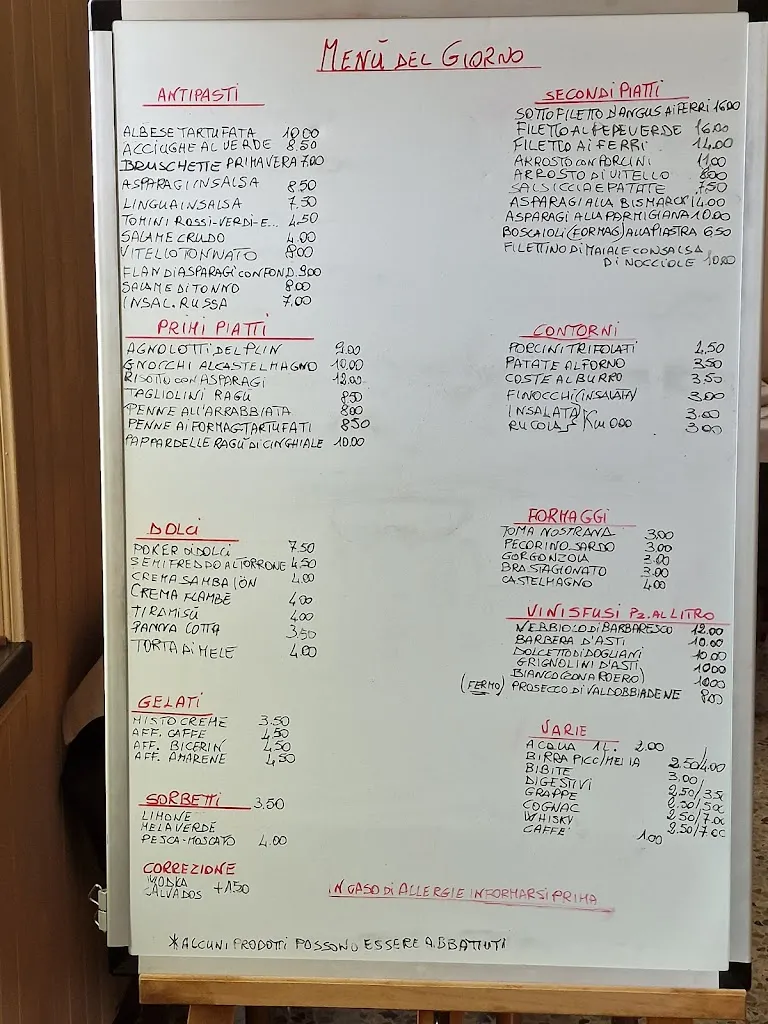 MENÙ DEL GIORNO
ANTIPASTI
ALBESE TARTUFATA 10.00
ACCIUGHE AL VERDE 8.50
BRUSCHETTE PRIMAVERA 7.00
ASPARAGI IN SALSA 8.50
LINGUA IN SALSA 7.50
TOMINI ROSSI-VERDI-E... 4.50
SALAME CRUDO 4.00
VITELLO TONNATO 8.00
FLAN DI ASPARAGI CON FOND. 9.00
SALAME DI TONNO 8.00
INSAL. RUSSA 7.00
PRIMI PIATTI
AGNOLOTTI DEL PLIN 9.00
GNOCCHI AL CASTELMAGNO 10.00
RISOTTO CON ASPARAGI 12.00
TAGLIOLINI RAGÙ 8.50
PENNE ALL'ARRABBIATA 8.00
PENNE AI FORMAG. TARTUFATI 8.50
PAPPARDELLE RAGÙ DI CINGHIALE 10.00
DOLCI
POKER DI DOLCI 7.50
SEMIFREDDO AL TORRONE 4.50
CREMA SAMBAIÖN 4.00
CREMA FLAMBÈ 4.00
TIRAMISÙ 4.00
PANNA COTTA 3.50
TORTA DI MELE 4.00
GELATI
MISTO CREME 3.50
AFF. CAFFÈ 4.50
AFF. BICERIN 4.50
AFF. AMARENE 4.50
SORBETTI 3.50
LIMONE
MELA VERDE
PESCA-MOSCATO 4.00
CORREZIONE
VODKA
CALVADOS +1.50
SECONDI PIATTI
SOTTOFILETTO D'ANGUS AI FERRI 16.00
FILETTO AL PEPE VERDE 16.00
FILETTO AI FERRI 14.00
ARROSTO CON PORCINI 11.00
ARROSTO DI VITELLO 8.00
SALSICCIA E PATATE 7.50
ASPARAGI ALLA BISMARCK 14.00
ASPARAGI ALLA PARMIGIANA 10.00
BOSCAIOLI (FORMAG) ALLA PIASTRA 6.50
FILETTINO DI MAIALE CON SALSA
DI NOCCIOLE 10.00
CONTORNI
PORCINI TRIFOLATI 4.50
PATATE AL FORNO 3.50
COSTE AL BURRO 3.50
FINOCCHI (INSALATA) 3.00
INSALATA 3.00
RUCOLA Km 000 3.00
FORMAGGI
TOMA NOSTRANA 3.00
PECORINO SARDO 3.00
GORGONZOLA 3.00
BRA STAGIONATO 3.00
CASTELMAGNO 4.00
VINI SFUSI PZ. AL LITRO
NEBBIOLO DI BARBARESCO 12.00
BARBERA D'ASTI 10.00
DOLCETTO DI DOGLIANI 10.00
GRIGNOLINI D'ASTI 10.00
BIANCO (ZONA ROERO) 10.00
(FERMO) PROSECCO DI VALDOBBIADENE 8.00
VARIE
ACQUA 1L. 2.00
BIRRA PICC/MEDIA 2.50/4.00
BIBITE 3.00/
DIGESTIVI 2.50/3.5
GRAPPE 2.50/5.00
COGNAC 2.50/7.00
WHISKY 2.50/7.00
CAFFE' 1.00
IN CASO DI ALLERGIE INFORMARSI PRIMA
*ALCUNI PRODOTTI POSSONO ESSERE ABBATTUTI